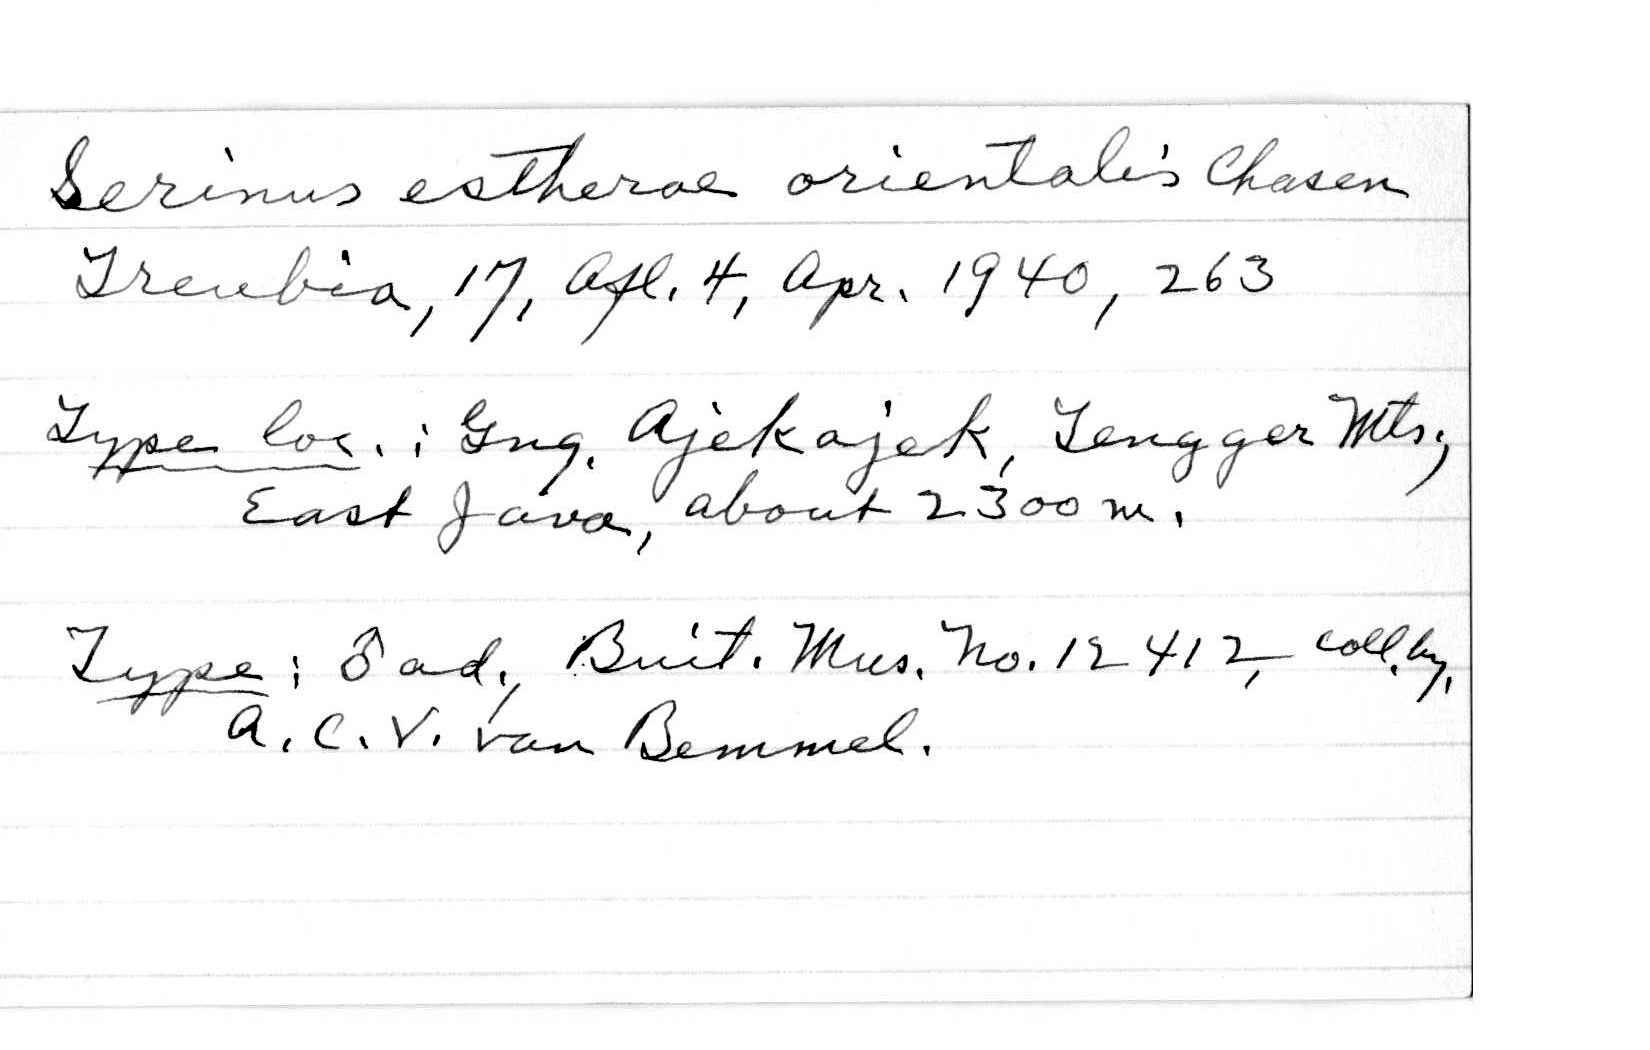 Serinus estherae orientalis Chasen
Treubia, 17, Afl. 4, Apr. 1940, 263
Type loc. : Gng. Ajekajek, Tengger Mts.,
East Java, about 2300 m.
Type : ♂ ad., Buit. Mus. No. 12412, coll. by.
A. C. V. van Bemmel.